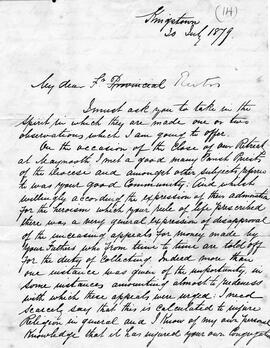 (14)
Kingstown
30 July 1879
My dear Fr Provincial Rector
I must ask you to take in the
spirit in which they are made one or two
observations which I am going to offer.
On the occasion of the close of our Retreat
at Maynooth I met a good many Parish Priests
of the Diocese and amongst other subjects
to was your good Community: And whilst
willingly according the expression of their admiration
for the heroism which your rule of life prescribed
there was a very general expression of disapproval
of the unceasing appeals for money made by
your Fathers who from time to time are told off
for the duty of Collecting. Indeed more than
one instance was given of the importunity, in
some instances amounting almost to rudeness
with which these appeals were urged. I need
scarcely say that this is calculated to injure
Religion in general and I know of my own personal
Knowledge that it has injured your own